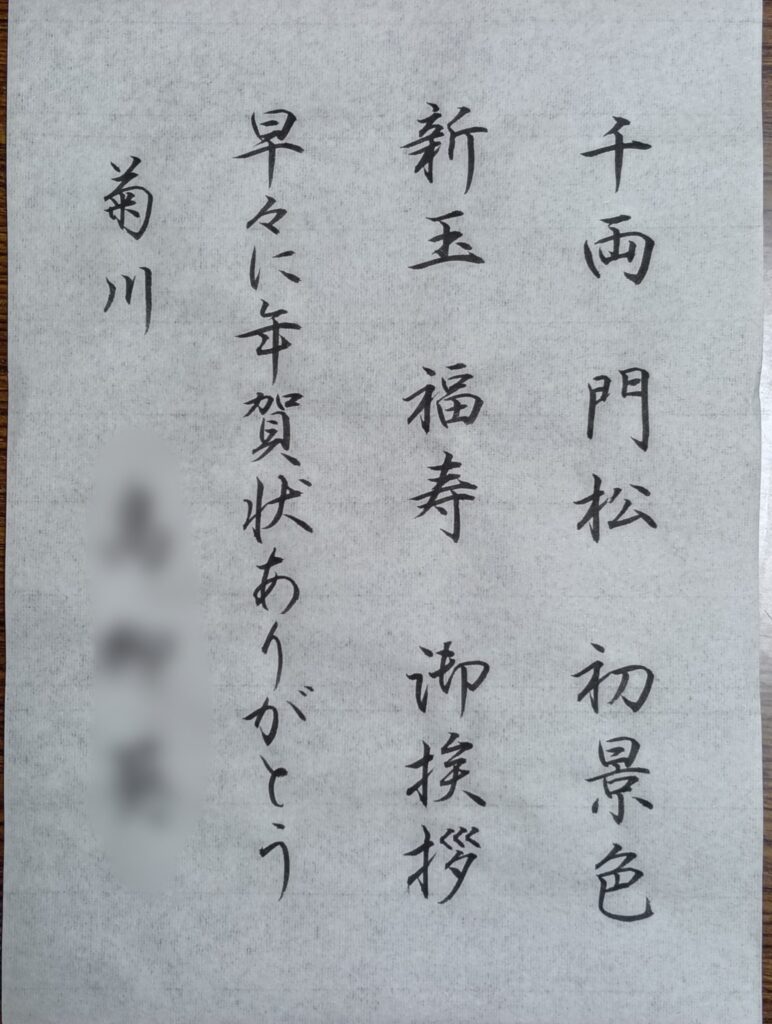 千両 門松 初景色
新玉 福寿 御挨拶
早々に年賀状ありがとう
菊川